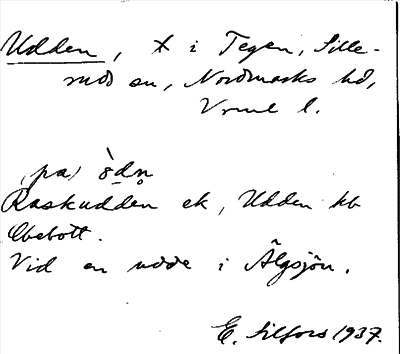 Udden, ✝ i Tegen, Sille-
ruds sn, Nordmarks hd,
Vrml l.
(på) ò̀dn̥
Raskudden ek, Udden hb
Obebott.
Vid en udde i Älgsjön.
E. Silfors 1937.